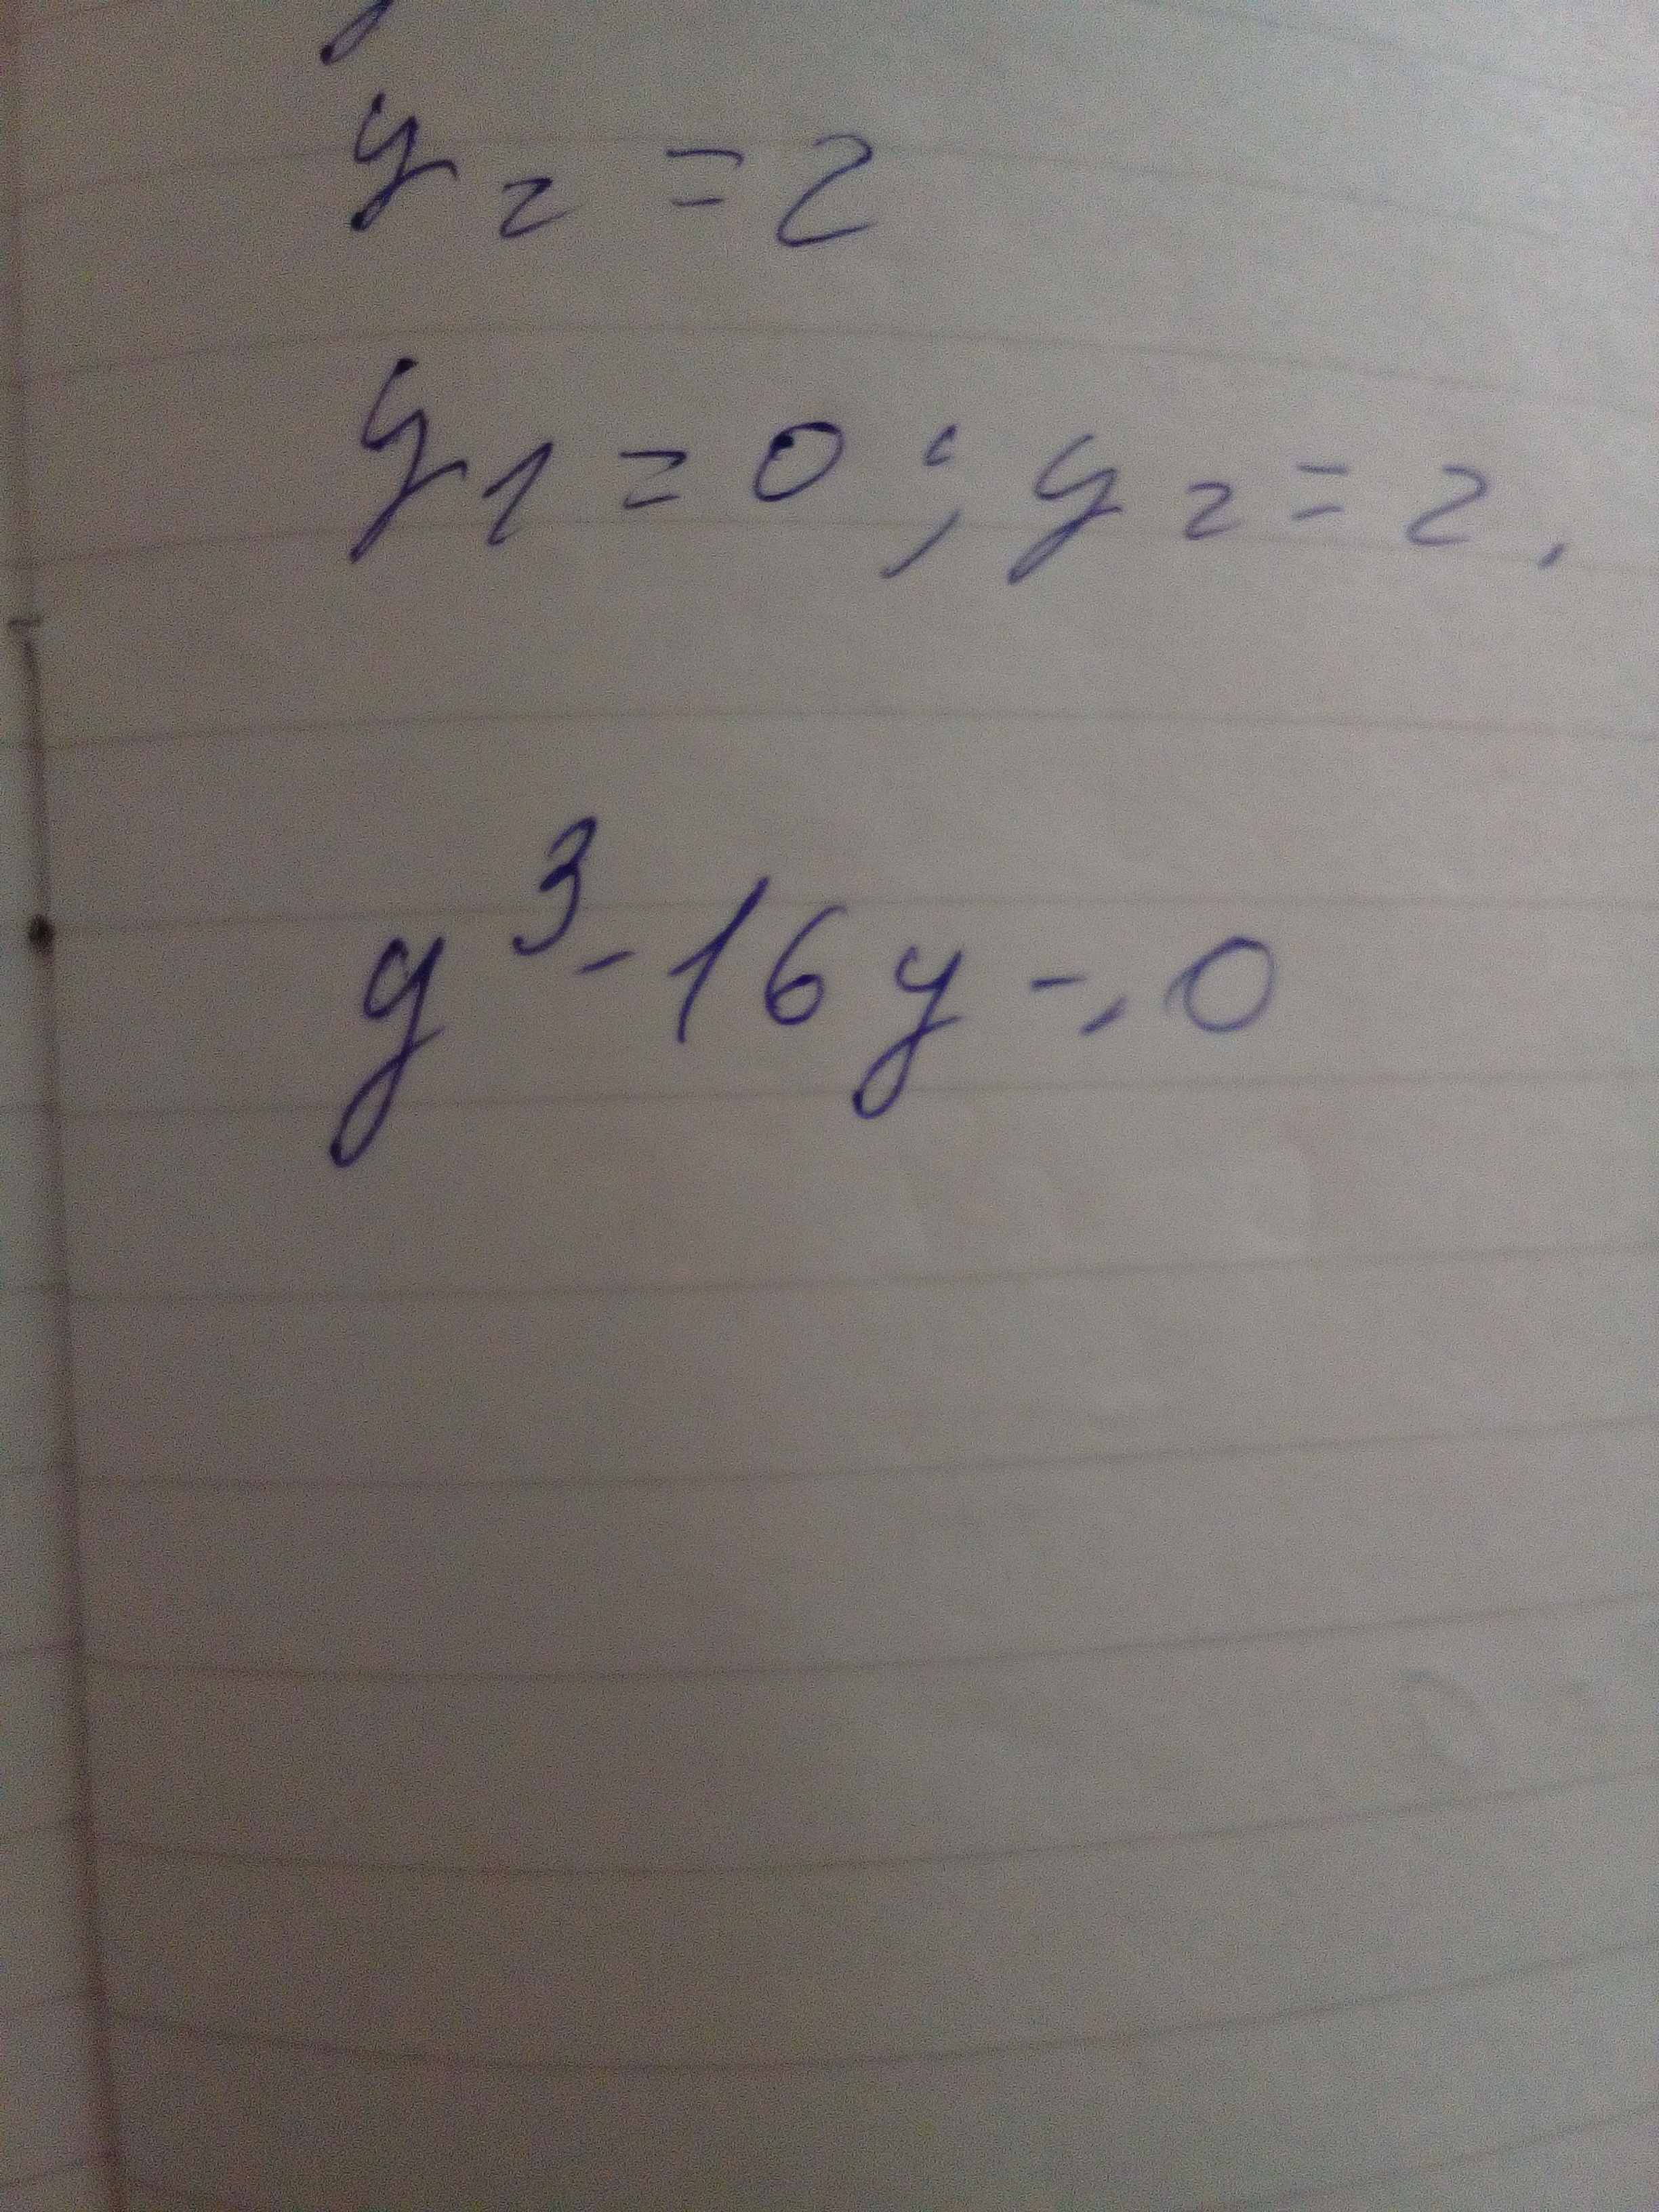 y₂ = 2
y₁ = 0 ; y₂ = 2.
y³ - 16y = 0